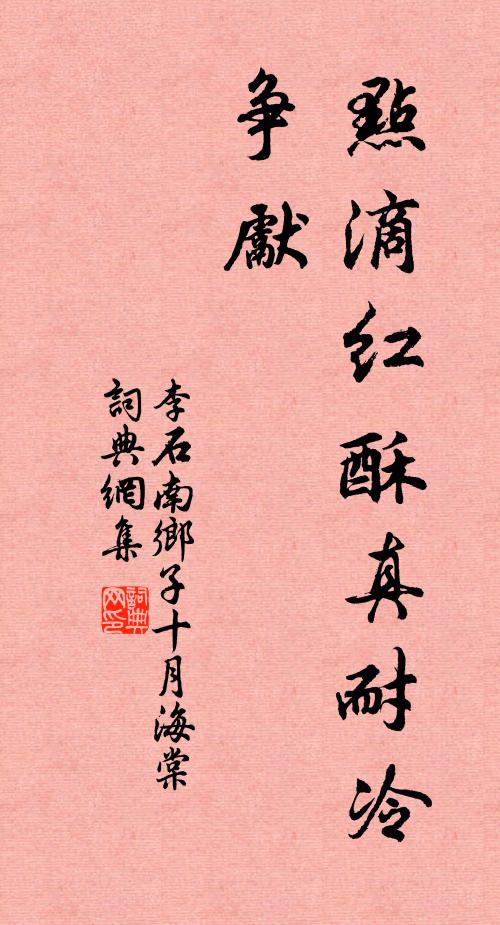 點滴紅酥真耐冷
爭獻
李石南鄉子十月海棠
詞典網集
詞典网印